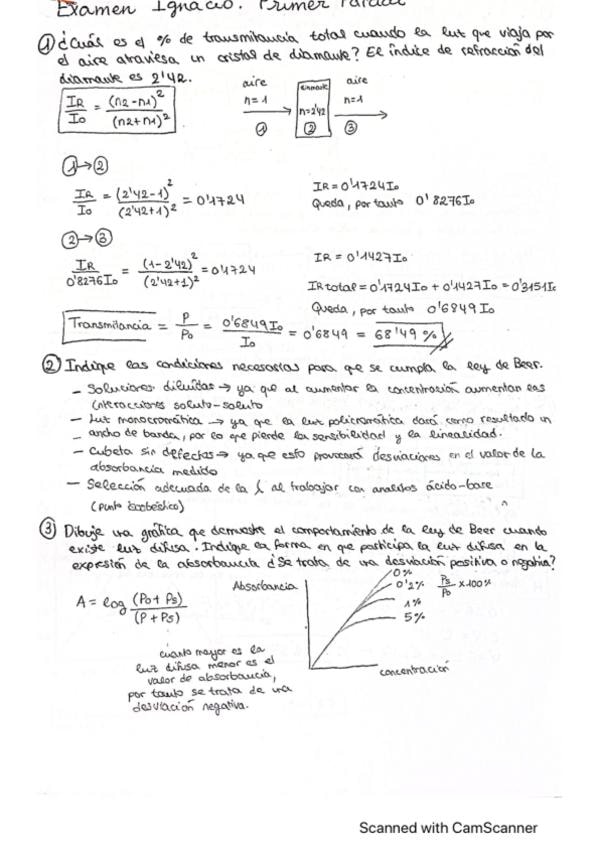 Examen Ignacio. Primer Parcial
① ¿Cuál es el % de transmitancia total cuando la luz que viaja por
el aire atraviesa un cristal de diamante? El índice de refracción del
diamante es 2'42.
IR/I0 = (n2-n1)²/(n2+n1)²
aire n=1 ①
diamante n=2'42 ②
aire n=1 ③
①→②
IR/I0 = (2'42-1)²/(2'42+1)² = 0'1724
IR = 0'1724I0
Queda, por tanto 0'8276I0
②→③
IR/0'8276I0 = (1-2'42)²/(2'42+1)² = 0'1724
IR = 0'1427I0
IR total = 0'1724I0 + 0'1427I0 = 0'3151I0
Queda, por tanto 0'6849I0
Transmilancia = P/P0 = 0'6849I0/I0 = 0'6849 = 68'49%
② Indique las condiciones necesarias para que se cumpla la ley de Beer.
- Soluciones diluidas → ya que al aumentar la concentración aumentan las
interacciones soluto-soluto
- Luz monocromática → ya que la luz policromática dará como resultado un
- ancho de banda, por lo que pierde la sensibilidad y la linealidad.
- Cubeta sin defectos → ya que esto provocará desviaciones en el valor de la
absorbancia medido
- Selección adecuada de la λ al trabajar con analitos ácido-base
(punto isosbéstico)
③ Dibuje una gráfica que demuestre el comportamiento de la ley de Beer cuando
existe luz difusa. Indique la forma en que participa la luz difusa en la
expresión de la absorbancia ¿Se trata de una desviación positiva o negativa?
A = log (P0 + Ps)/(P + Ps)
Absorbancia
0%
0'2%
1%
5%
Ps/P0 x 100%
concentración
cuanto mayor es la
luz difusa menor es el
valor de absorbancia,
por tanto se trata de una
desviación negativa.
Scanned with CamScanner